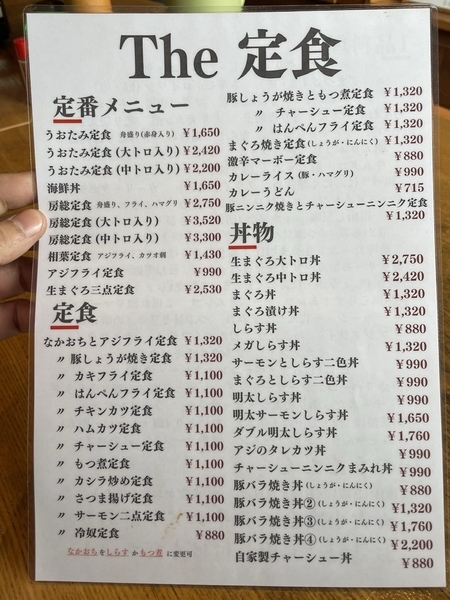 The 定食
定番メニュー
うおたみ定食 舟盛り(赤身入り) ￥1,650
うおたみ定食 (大トロ入り) ￥2,420
うおたみ定食 (中トロ入り) ￥2,200
海鮮丼 ￥1,650
房総定食 舟盛り、フライ、ハマグリ ￥2,750
房総定食 (大トロ入り) ￥3,520
房総定食 (中トロ入り) ￥3,300
相葉定食 アジフライ、カツオ刺 ￥1,430
アジフライ定食 ￥990
生まぐろ三点定食 ￥2,530
定食
なかおちとアジフライ定食 ￥1,320
〃 豚しょうが焼き定食 ￥1,320
〃 カキフライ定食 ￥1,100
〃 はんぺんフライ定食 ￥1,100
〃 チキンカツ定食 ￥1,100
〃 ハムカツ定食 ￥1,100
〃 チャーシュー定食 ￥1,100
〃 もつ煮定食 ￥1,100
〃 カシラ炒め定食 ￥1,100
〃 さつま揚げ定食 ￥1,100
〃 サーモン二点定食 ￥1,100
〃 冷奴定食 ￥880
なかおちをしらす か もつ煮 に変更可
豚しょうが焼きともつ煮定食 ￥1,320
〃 チャーシュー定食 ￥1,320
〃 はんぺんフライ定食 ￥1,320
まぐろ焼き定食 (しょうが・にんにく) ￥1,320
激辛マーボー定食 ￥880
カレーライス (豚・ハマグリ) ￥990
カレーうどん ￥715
豚ニンニク焼きとチャーシューニンニク定食
￥1,320
丼物
生まぐろ大トロ丼 ￥2,750
生まぐろ中トロ丼 ￥2,420
まぐろ丼 ￥1,320
まぐろ漬け丼 ￥1,320
しらす丼 ￥880
メガしらす丼 ￥1,320
サーモンとしらす二色丼 ￥990
まぐろとしらす二色丼 ￥990
明太しらす丼 ￥990
明太サーモンしらす丼 ￥1,650
ダブル明太しらす丼 ￥1,760
アジのタレカツ丼 ￥990
チャーシューニンニクまみれ丼 ￥990
豚バラ焼き丼 (しょうが・にんにく) ￥880
豚バラ焼き丼② (しょうが・にんにく) ￥1,320
豚バラ焼き丼③ (しょうが・にんにく) ￥1,760
豚バラ焼き丼④ (しょうが・にんにく) ￥2,200
自家製チャーシュー丼 ￥880